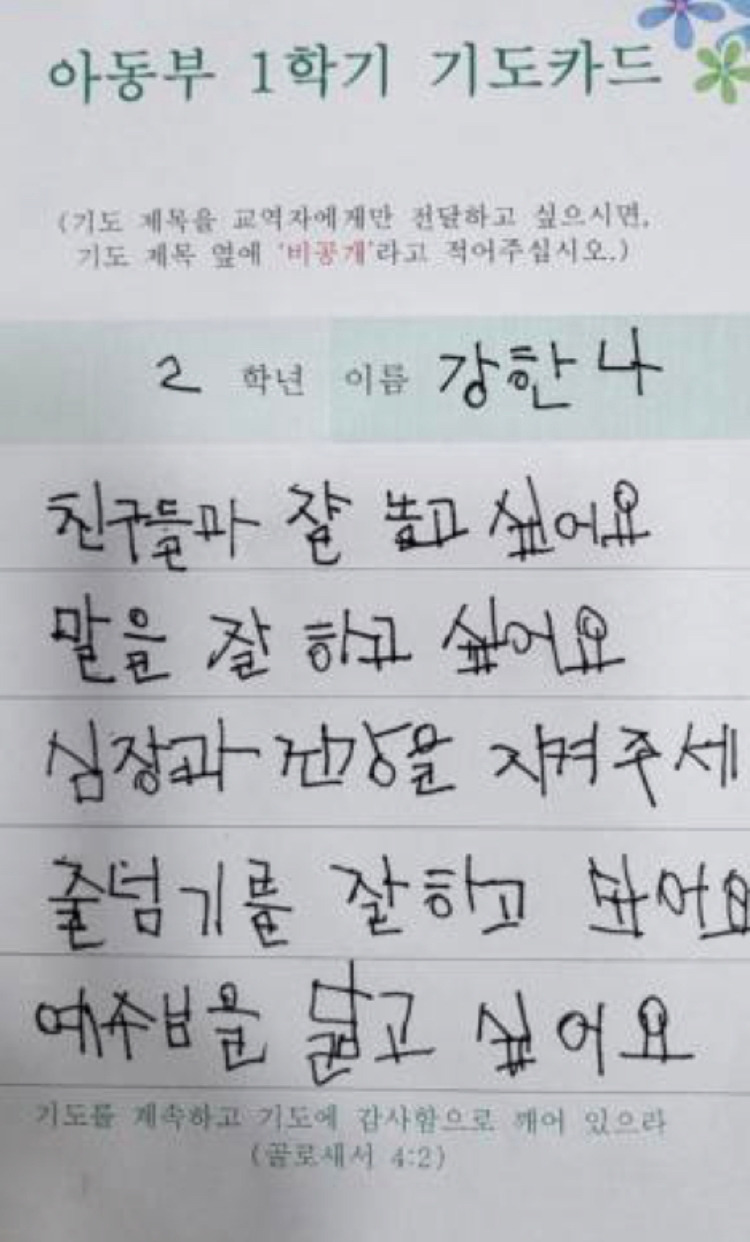 아동부 1학기 기도카드
(기도 제목을 교역자에게만 전달하고 싶으시면,
기도 제목 옆에 '비공개'라고 적어주십시오.)
2 학년 이름 강한나
친구들과 잘 놀고 싶어요
말을 잘 하고 싶어요
심장과 건강을 지켜주세
줄넘기를 잘하고
예수님을 닮고 싶어요
기도를 계속하고 기도에 감사함으로 깨어 있으라
(골로새서 4:2)